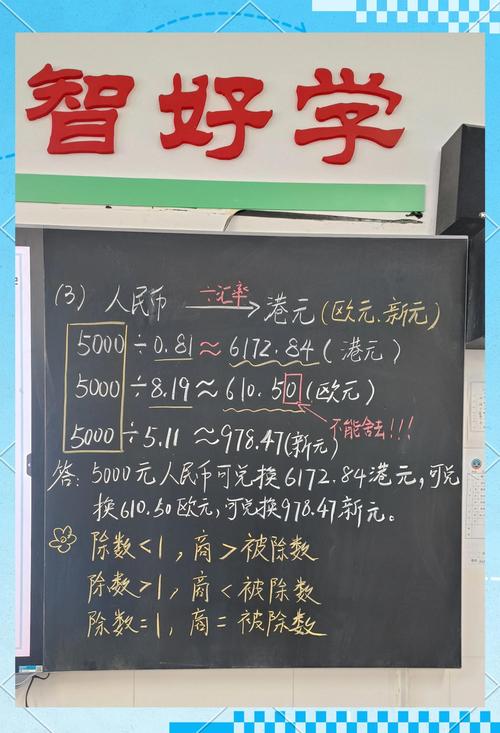 智好学
(3) 人民币 ÷汇率 → 港元(欧元.新元)
5000÷0.81≈6172.84(港元)
5000÷8.19≈610.50(欧元)
不能舍去!!!
5000÷5.11≈978.47(新元)
答:5000元人民币可兑换6172.84港元,可兑
换610.50欧元,可兑换978.47新元。
除数<1,商>被除数
除数>1,商<被除数
除数=1,商=被除数